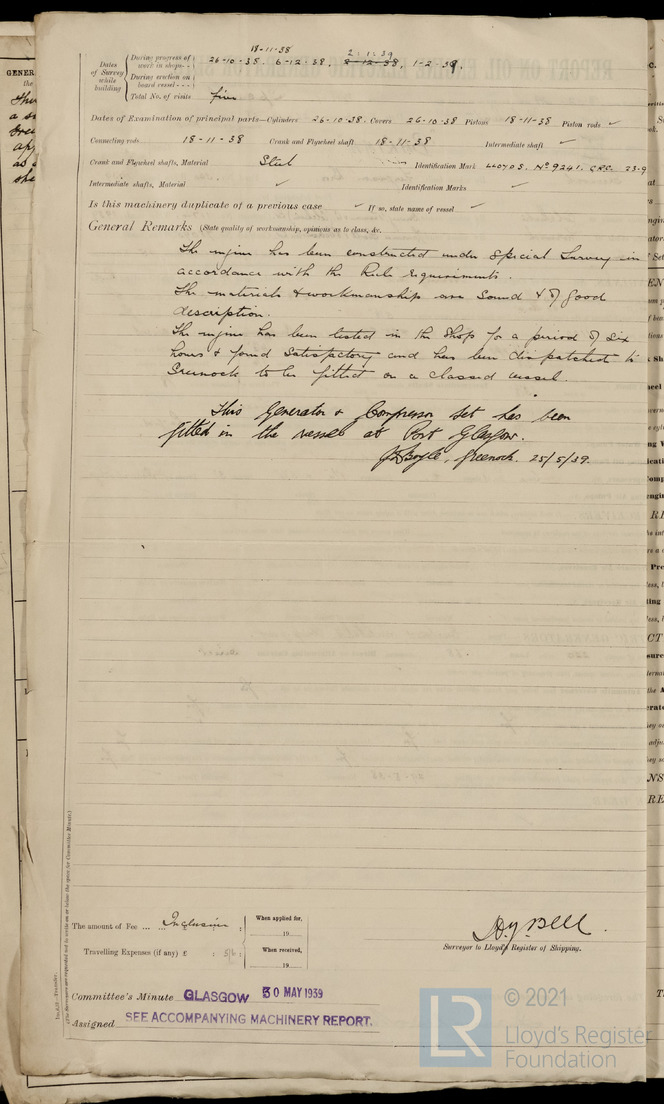 18-11-38 2-1-39
Dates of Survey while building
During progress of work in shops - - 26-10-38. 6-12-38. 8-12-38, 1-2-39.
During erection on board vessel - - -
Total No. of visits five
Dates of Examination of principal parts—Cylinders 26-10-38. Covers 26-10-38 Pistons 18-11-38 Piston rods ✓
Connecting rods 18-11-38 Crank and Flywheel shaft 18-11-38 Intermediate shaft ✓
Crank and Flywheel shafts, Material Steel Identification Mark LLOYDS. No 9241. CRC. 23-9
Intermediate shafts, Material ✓ Identification Marks ✓
Is this machinery duplicate of a previous case ✓ If so, state name of vessel ✓
General Remarks (State quality of workmanship, opinions as to class, &c.
The engine has been constructed under Special Survey in
accordance with the Rule requirements.
The materials & workmanship are sound & of good
description.
The engine has been tested in the shop for a period of six
hours & found satisfactory and has been dispatched to
Greenock to be fitted on a classed vessel.
This Generator & Compressor set has been
fitted in the vessel at Port Glasgow.
Boyle, Greenock. 25/5/39.
The amount of Fee ... ... Inclusive : When applied for,
19
Travelling Expenses (if any) £ : : When received,
19
Surveyor to Lloyd's Register of Shipping.
Committee's Minute GLASGOW 30 MAY 1939
Assigned SEE ACCOMPANYING MACHINERY REPORT.
(The Surveyors are requested not to write on or below the space for Committee Minute.)
LR © 2021
Lloyd's Register
Foundation